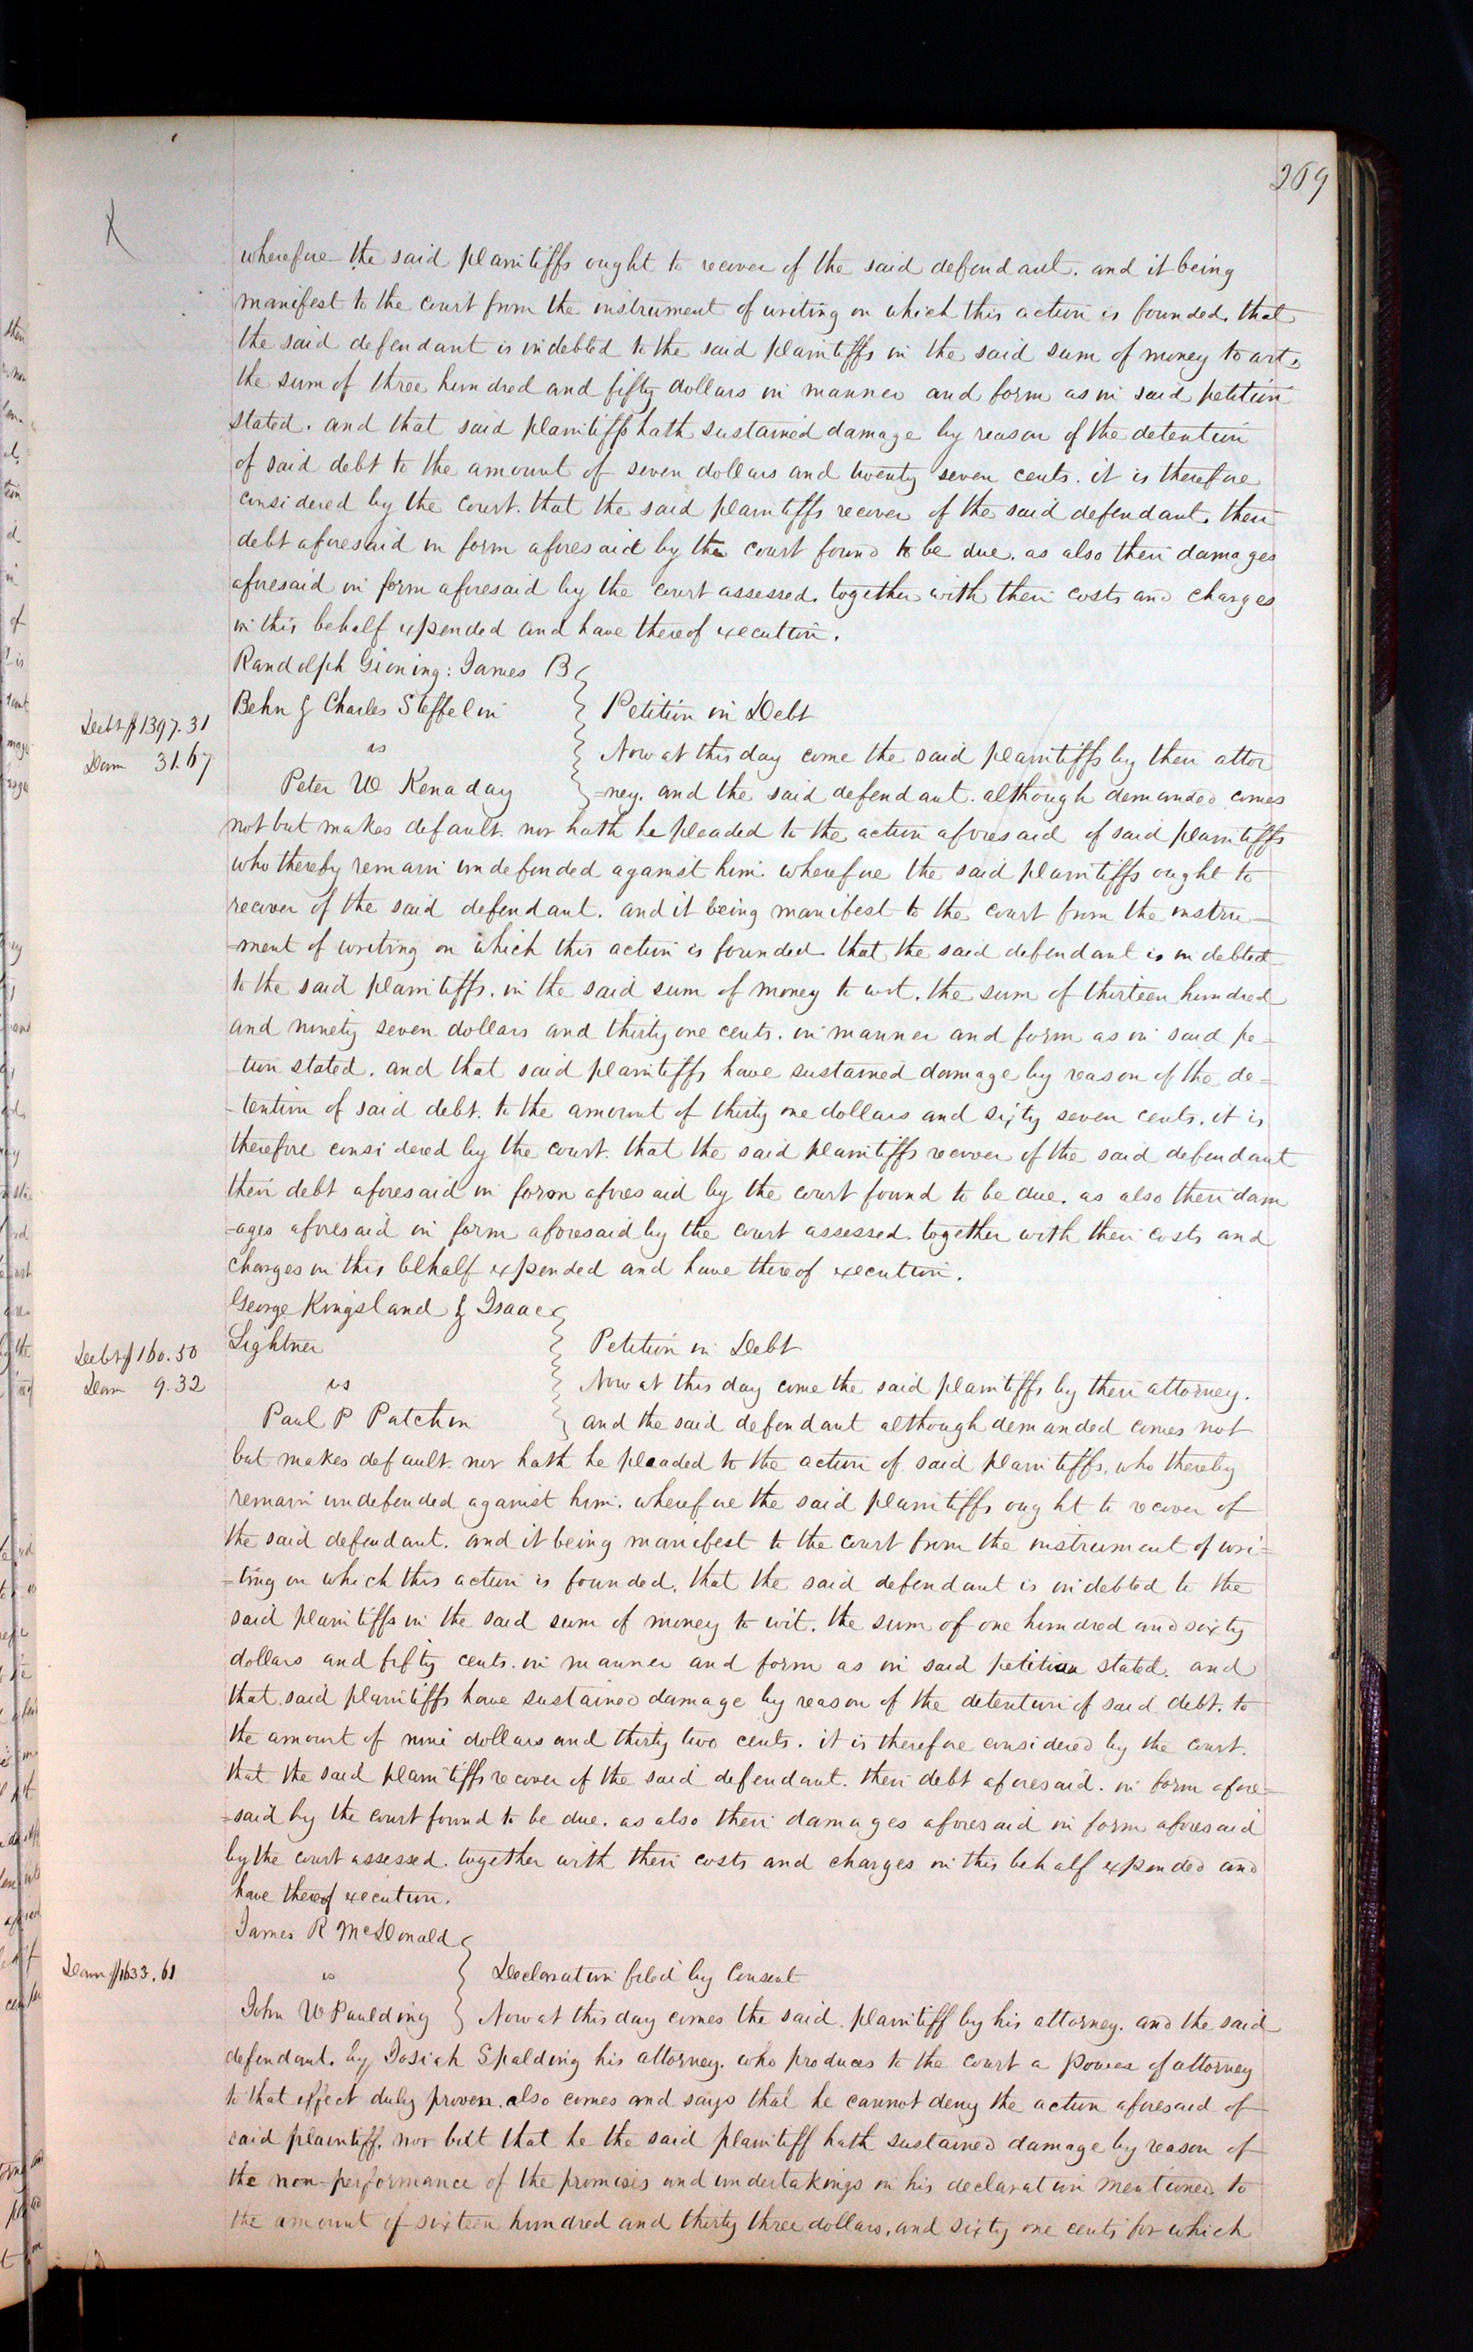 269
wherefore the said plaintiffs ought to recover of the said defendant. and it being
manifest to the court from the instrument of writing on which this action is founded, that
the said defendant is indebted to the said plaintiffs in the said sum of money to wit,
the sum of three hundred and fifty dollars in manner and form as in said petition
stated. and that said plaintiffs hath sustained damage by reason of the detention
of said debt to the amount of seven dollars and twenty seven cents. it is therefore
considered by the court. that the said plaintiffs recover of the said defendant, their
debt aforesaid in form aforesaid by the court found to be due. as also their damages
aforesaid in form aforesaid by the court assessed. together with their costs and charges
in this behalf expended and have thereof execution.
Randolph Gioning: James B
Behn & Charles Steffelin
Petition in Debt
Debt $1397.31
vs
Now at this day come the said plaintiffs by their attor
Dam 31.67
Peter W Kenaday
=ney. and the said defendant. although demanded comes
not but makes default. nor hath he pleaded to the action aforesaid of said plaintiffs
who thereby remain undefended against him. wherefore the said plaintiffs ought to
recover of the said defendant. and it being manifest to the court from the instru=
=ment of writing on which this action is founded that the said defendant is indebted
to the said plaintiffs. in the said sum of money to wit. the sum of thirteen hundred
and ninety seven dollars and thirty one cents. in manner and form as in said pe=
tion stated. and that said plaintiffs have sustained damage by reason of the de=
-tention of said debt. to the amount of thirty one dollars and sixty seven cents. it is
therefore considered by the court. that the said plaintiffs recover of the said defendant
their debt aforesaid in form aforesaid by the court found to be due. as also their dam
-ages aforesaid in form aforesaid by the court assessed. together with their costs and
charges in this behalf expended and have thereof execution.
George Kingsland & Isaac
Lightner
Petition in Debt
Debt $160.50
vs
Now at this day come the said plaintiffs by their attorney.
Dam 9.32
Paul P Patchin
and the said defendant although demanded comes not
but makes default. nor hath he pleaded to the action of said plaintiffs, who thereby
remain undefended against him. wherefore the said plaintiffs ought to recover of
the said defendant. and it being manifest to the court from the instrument of wri=
=ting on which this action is founded. that the said defendant is indebted to the
said plaintiffs in the said sum of money to wit. the sum of one hundred and sixty
dollars and fifty cents. in manner and form as in said petition stated. and
that said plaintiffs have sustained damage by reason of the detention of said debt. to
the amount of nine dollars and thirty two cents. it is therefore considered by the court.
that the said plaintiffs recover of the said defendant. their debt aforesaid. in form afore=
=said by the court found to be due. as also their damages aforesaid in form aforesaid
by the court assessed. together with their costs and charges in this behalf expended and
have thereof execution.
James R McDonald
Dam $1633.61
vs
Declaration filed by Consent
John W Paulding
Now at this day comes the said plaintiff by his attorney. and the said
defendant. by Josiah Spalding his attorney. who produces to the court a power of attorney
to that effect duly proven. also comes and says that he cannot deny the action aforesaid of
said plaintiff, nor but that he the said plaintiff hath sustained damage by reason of
the non-performance of the promises and undertakings in his declaration mentioned to
the amount of sixteen hundred and thirty three dollars. and sixty one cents for which